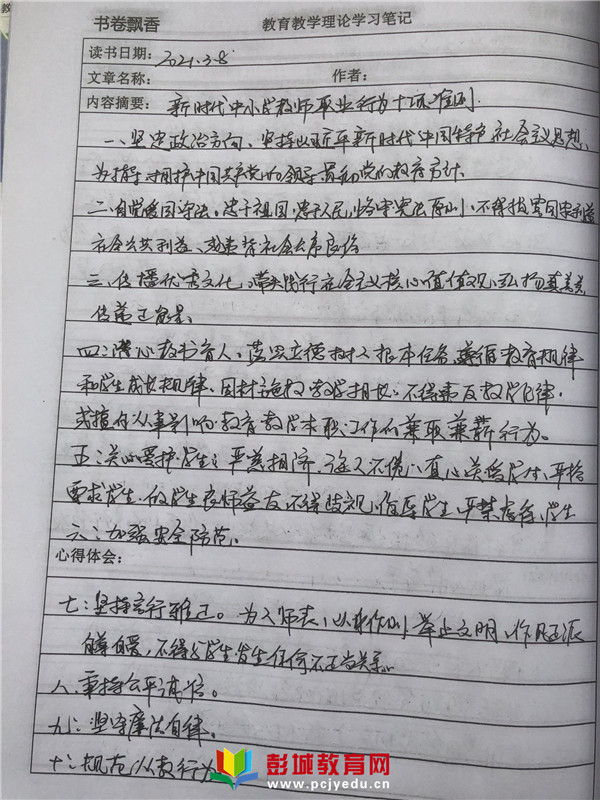 书卷飘香 教育教学理论学习笔记
读书日期: 2021.3.8
文章名称: 作者:
内容摘要: 新时代中小学教师职业行为十项准则.
一、坚定政治方向、坚持以习近平新时代中国特色社会主义思想,
为指导、拥护中国共产党的领导、贯彻党的教育方针.
二、自觉爱国守法。忠于祖国,忠于人民,恪守宪法原则、不得损害国家利益
社会公共利益、或违背社会公序良俗
三、传播优秀文化、带头践行社会主义核心价值观、弘扬真善美
传递正能量.
四:潜心教书育人、落实立德树人根本任务、遵循教育规律
和学生成长规律、因材施教、教学相长:不得违反教学纪律,
或擅自从事影响教育教学本职工作的兼职兼薪行为。
五:关心爱护学生:严慈相济、诲人不倦、真心关爱学生、严格
要求学生、做学生良师益友、不得歧视、侮辱学生、严禁虐待学生
六:加强安全防范.
心得体会:
七:坚持言行雅正。为人师表,以身作则、举止文明、作风正派
自尊自爱,不得与学生发生任何不正当关系..
八.秉持公平诚信。
九:坚守廉洁自律.
十:规范从教行为
彭城教育网
www.pcjyedu.cn